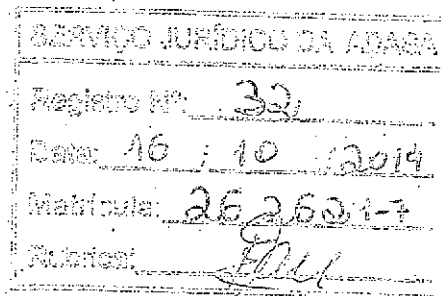 SERVIÇO JURÍDICO DA ADASA
Registro Nº: 32
Data: 16 / 10 / 2014
Matrícula: 26.263 1-7
Rubrica: